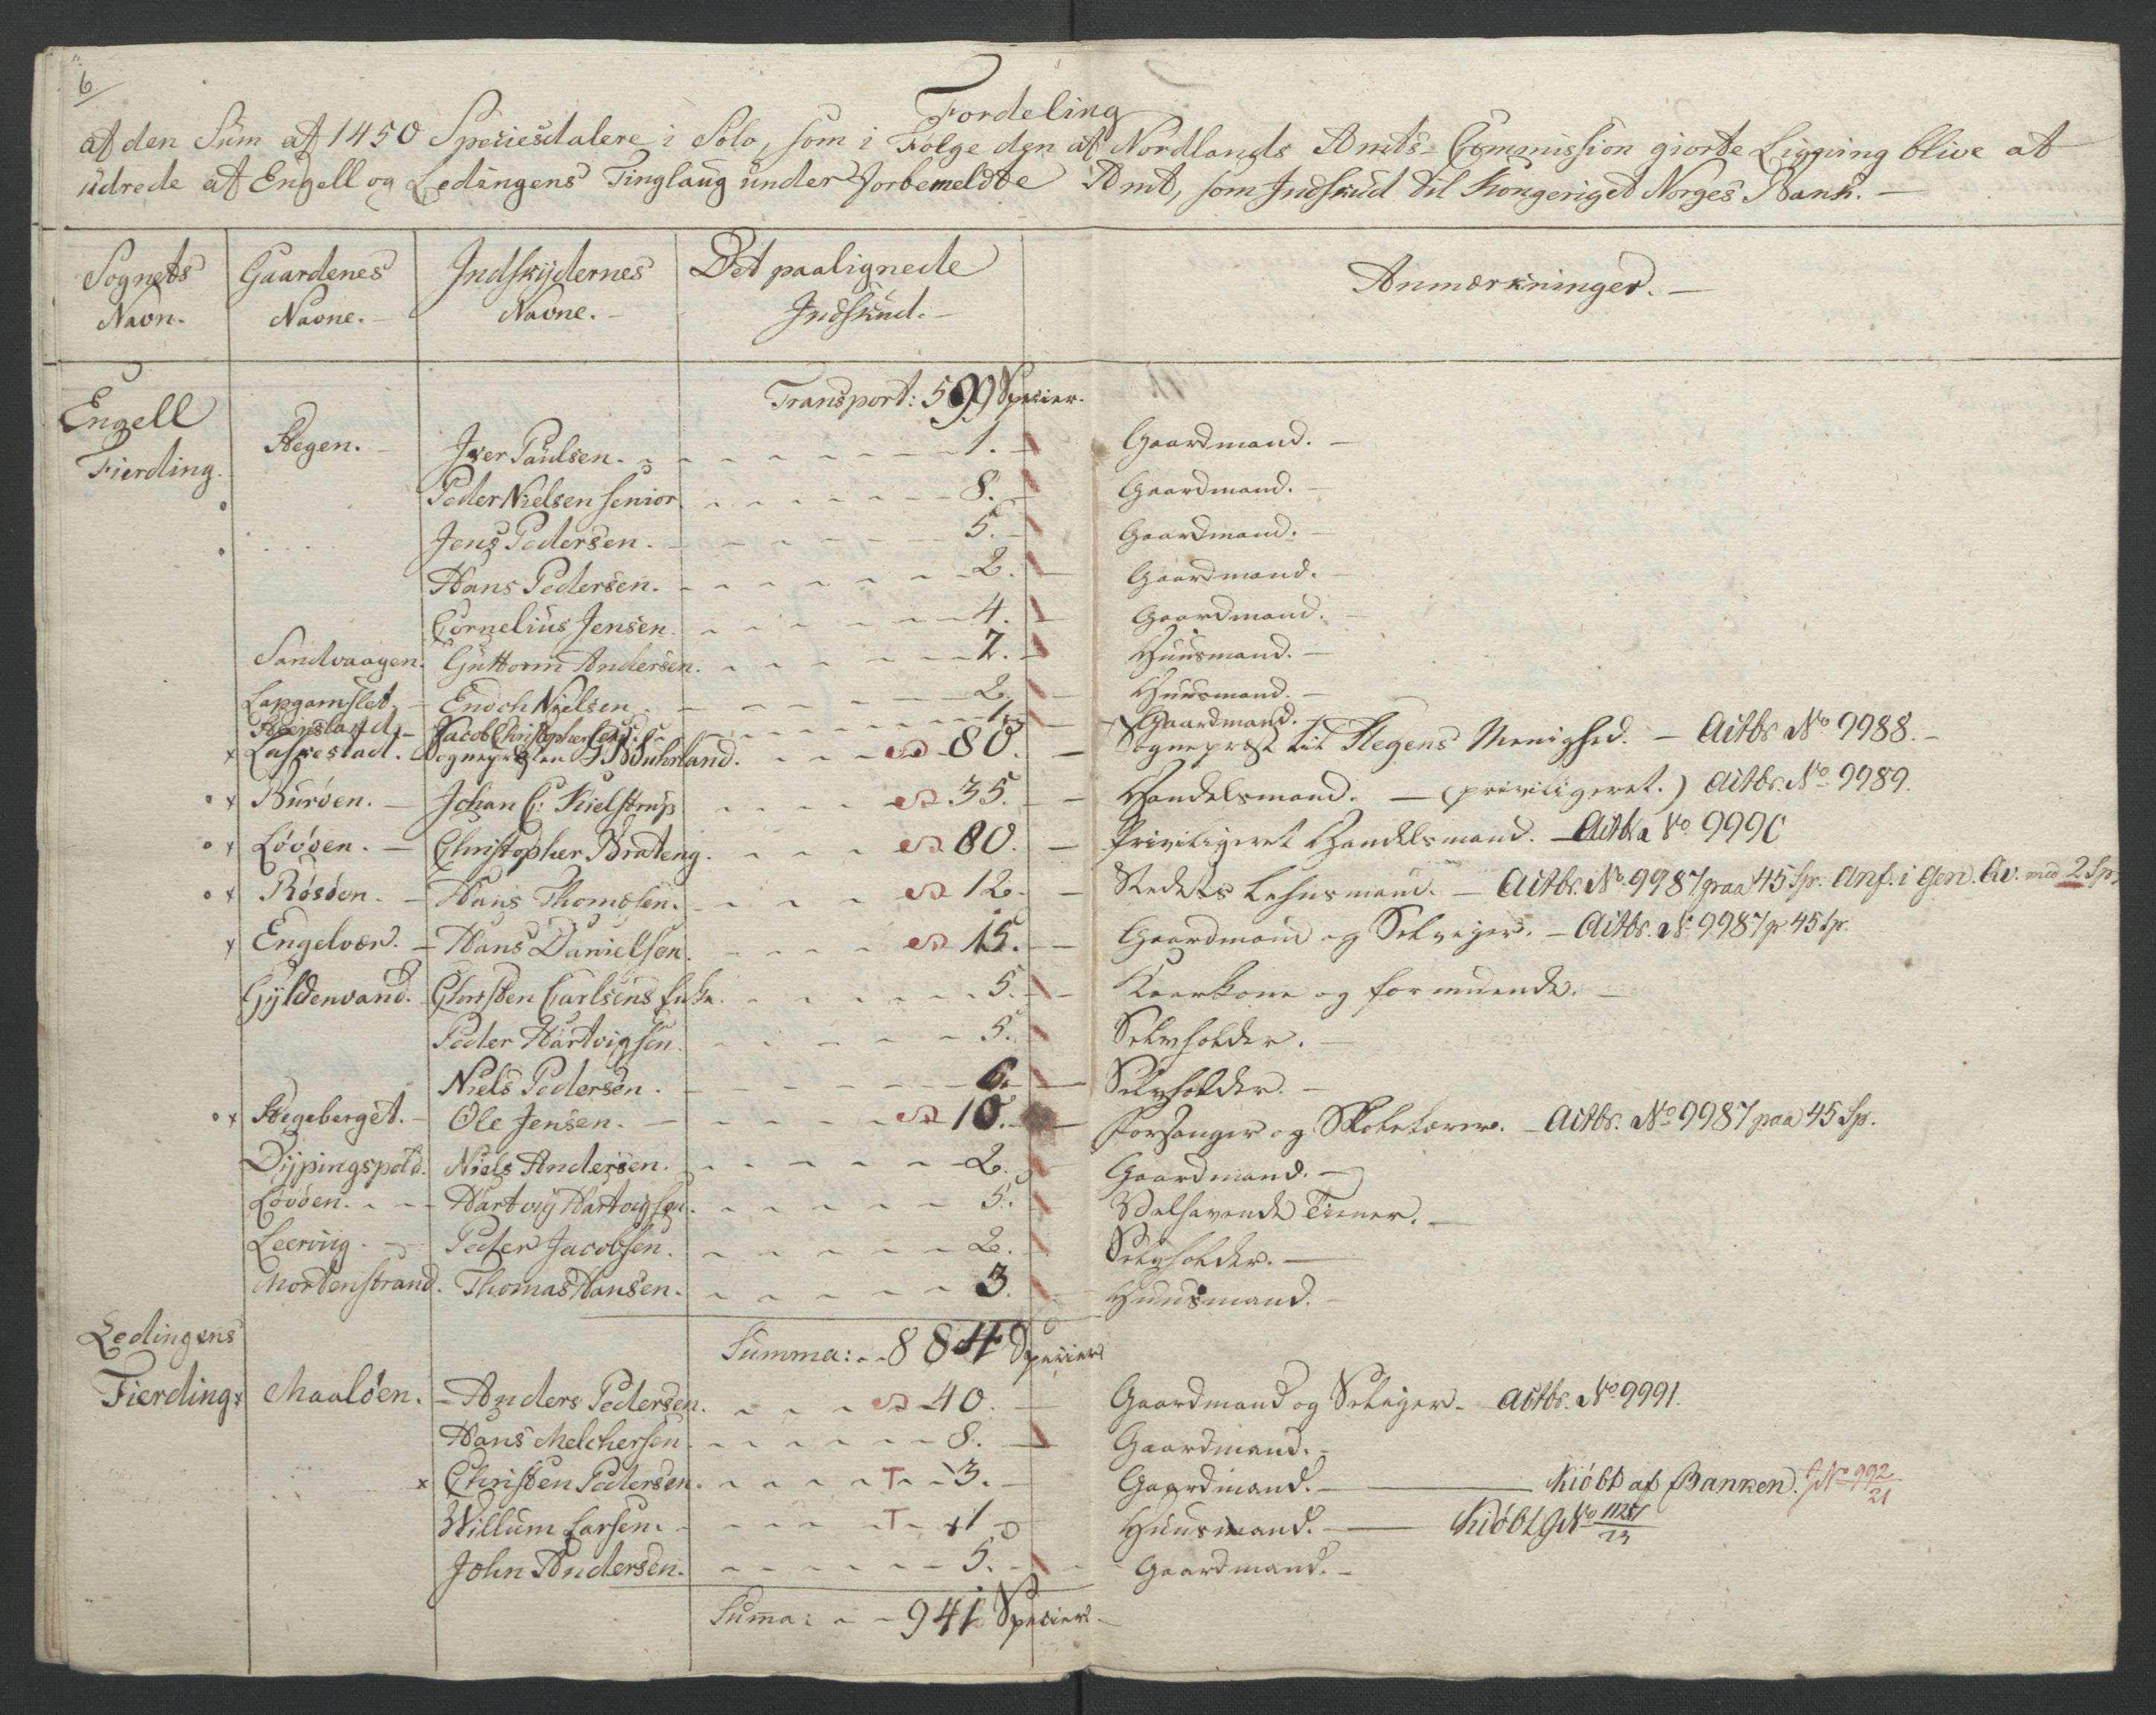 6.
Fordeling
af den Sum af 1450 Speciesdalere i Sølv, som i Følge den af Nordlands Amts-Commission giorte Ligning blive at
udrede af Engell og Lødingens Tinglaug under forbemeldte Amt, som Indskud til Kongeriget Norges Bank. —
Sognets Navn. Gaardenes Navne. — Indskydernes Navne. — Det paalignede Indskud. — Anmærkninger. —
Transport: 599 Specier.
Engell Fierding. Stegen. — Iver Paulsen. 1. Gaardmand. —
Peder Nielsen senior. 8. Gaardmand. —
Jens Pedersen. 5. Gaardmand. —
Hans Pedersen. 2. Gaardmand. —
Cornelius Jensen. 4. Gaardmand. —
Sandvaagen. Guttorm Andersen. 2. Huusmand. —
Enoch Nielsen. 2. Huusmand. —
Jacob Christophersen. 1. Gaardmand. —
x Laskestad. Sognepræsten Buhrland. 80. Sognepræst til Stegens Menighed. — Actbr. No 9988. —
o x Burøen. — Johan C: Kielstrup 35. Handelsmand. — (privilegeret.) Actbr. No 9989.
o x Løvøen. — Christopher Brateng. 80. Privilegeret Handelsmand. — No 9990
o x Røsøen. — Hans Thomesen. 12. Stedets Lehnsmand. — Actbr. No. 9987 paa 45 Sp. Anf. i Gen. med 2 Sp.
x Engelvær. — Hans Danielsen. 15. Gaardmand og Selveyer. — Actbr. No 9987 p 45 Sp.
Gyldenvand. Christen Carlsens Enke. 5. Kaarkone og formuende. —
Peder Hartvigsen. 5. Selvholder. —
Niels Pedersen. 6. Selvholder. —
o x Stegeberget. — Ole Jensen. 10. Forsanger og Skolelærer. — Actbr. No 9987 paa 45 Sp.
Dypingspold. Niels Andersen. 2. Gaardmand. —
Løvøen. Hartvig Hartvigsen. 5. Velhavende Tiener. —
Leervig. — Peder Jacobsen. 2. Selvholder. —
Mortenstrand. Thomas Hansen. 3. Huusmand. —
Summa: 884 Specier
Lødingens Fierding x Maaløen. — Anders Pedersen. 40. Gaardmand og Seleyer. — Actbr. No 9991.
Hans Melchersen. 8. Gaardmand. —
x Christen Pedersen. T 3. Gaardmand. — Kiøbt af Banken. No 992/21
Willum Larsen. T 1 Huusmand. — Kiøbt No
John Andersen. 5. Gaardmand. —
Summa: 941 Specier. —